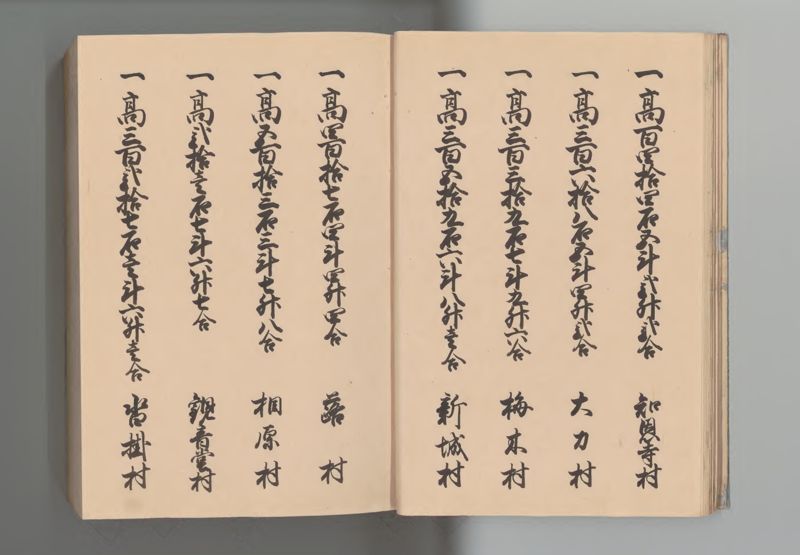 一高百四拾四石五斗弐升弐合 知恩寺村
一高三百六拾八石五斗四升弐合 大力村
一高三百三拾九石七斗九升六合 梅木村
一高三百五拾九石六斗八升壱合 新城村
一高四百拾七石四斗四升四合 蕗村
一高五百拾三石三斗七升八合 相原村
一高弐拾壱石七斗六升七合 観音堂村
一高三百弐拾七石壱斗六升壱合 沓掛村